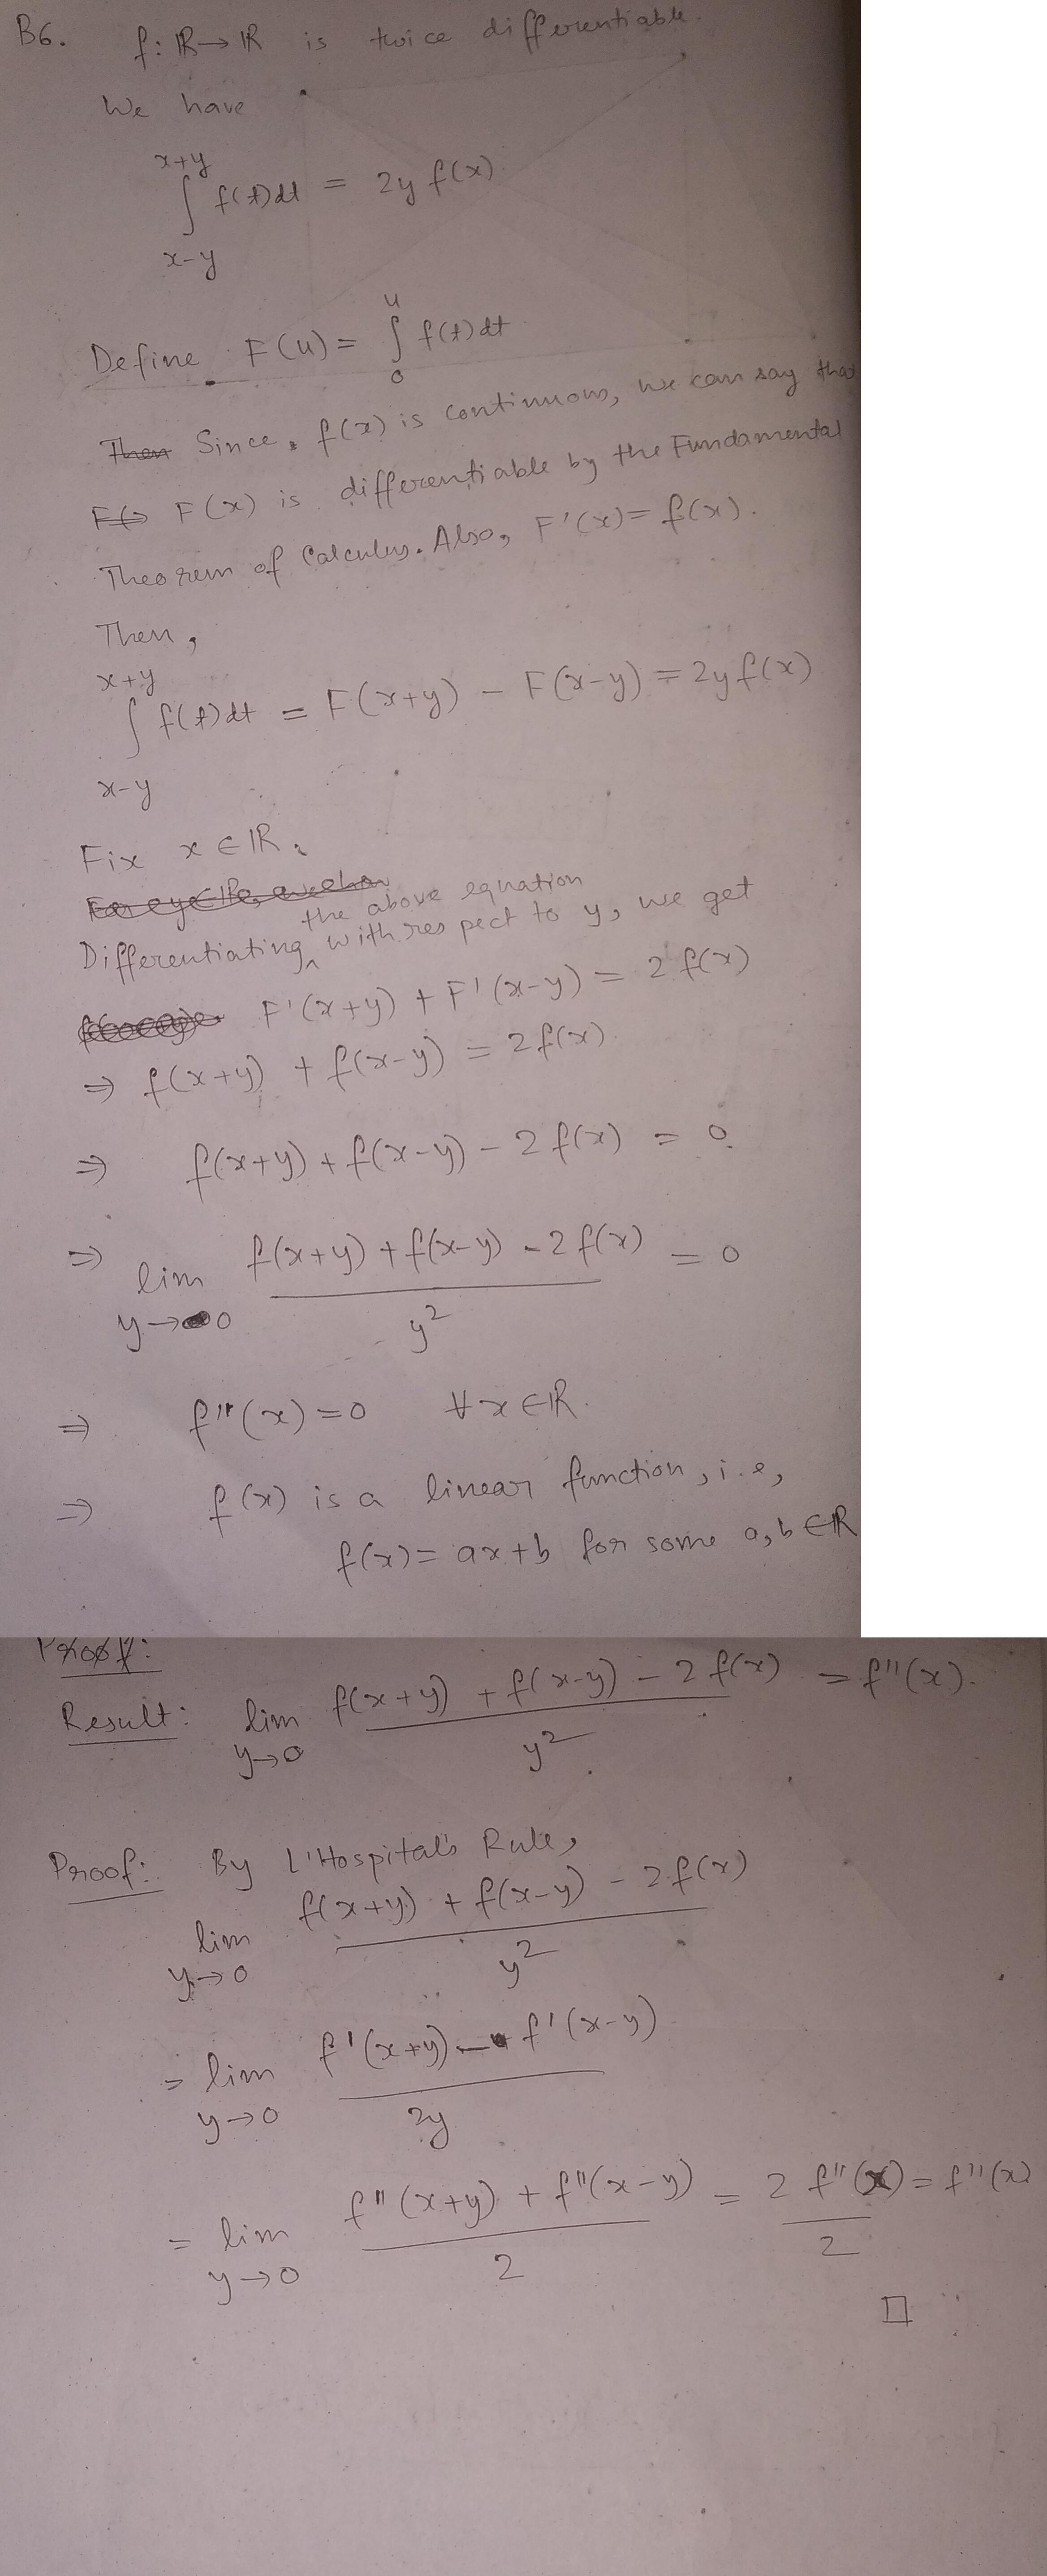 B6. f: ℝ→ℝ is twice differentiable.
We have
∫_{x-y}^{x+y} f(t)dt = 2y f(x)
Define F(u) = ∫_0^u f(t)dt
Then Since, f(x) is continuous, we can say that
F(x) is differentiable by the Fundamental
Theorem of Calculus. Also, F'(x) = f(x).
Then,
∫_{x-y}^{x+y} f(t)dt = F(x+y) - F(x-y) = 2y f(x)
Fix x ∈ ℝ.
Differentiating the above equation with respect to y, we get
F'(x+y) + F'(x-y) = 2 f(x)
⇒ f(x+y) + f(x-y) = 2 f(x)
⇒ f(x+y) + f(x-y) - 2 f(x) = 0
⇒ lim_{y→0} (f(x+y) + f(x-y) - 2 f(x)) / y² = 0
⇒ f''(x) = 0 ∀ x ∈ ℝ.
⇒ f(x) is a linear function, i.e,
f(x) = ax+b for some a, b ∈ ℝ
Proof:
Result: lim_{y→0} (f(x+y) + f(x-y) - 2 f(x)) / y² = f''(x).
Proof: By L'Hospital's Rule,
lim_{y→0} (f(x+y) + f(x-y) - 2 f(x)) / y²
= lim_{y→0} (f'(x+y) - f'(x-y)) / 2y
= lim_{y→0} (f''(x+y) + f''(x-y)) / 2 = 2 f''(x) / 2 = f''(x)
□